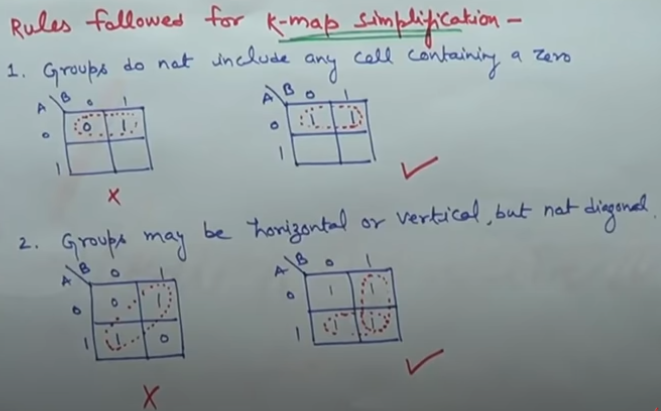 Rules followed for K-map simplification -
1. Groups do not include any cell containing a zero
A B 0 1
0 0 1
1
X
A B 0 1
0 1 1
1
✓
2. Groups may be horizontal or vertical, but not diagonal.
A B 0 1
0 0 1
1 1 0
X
A B 0 1
0 1 1
1 1 1
✓